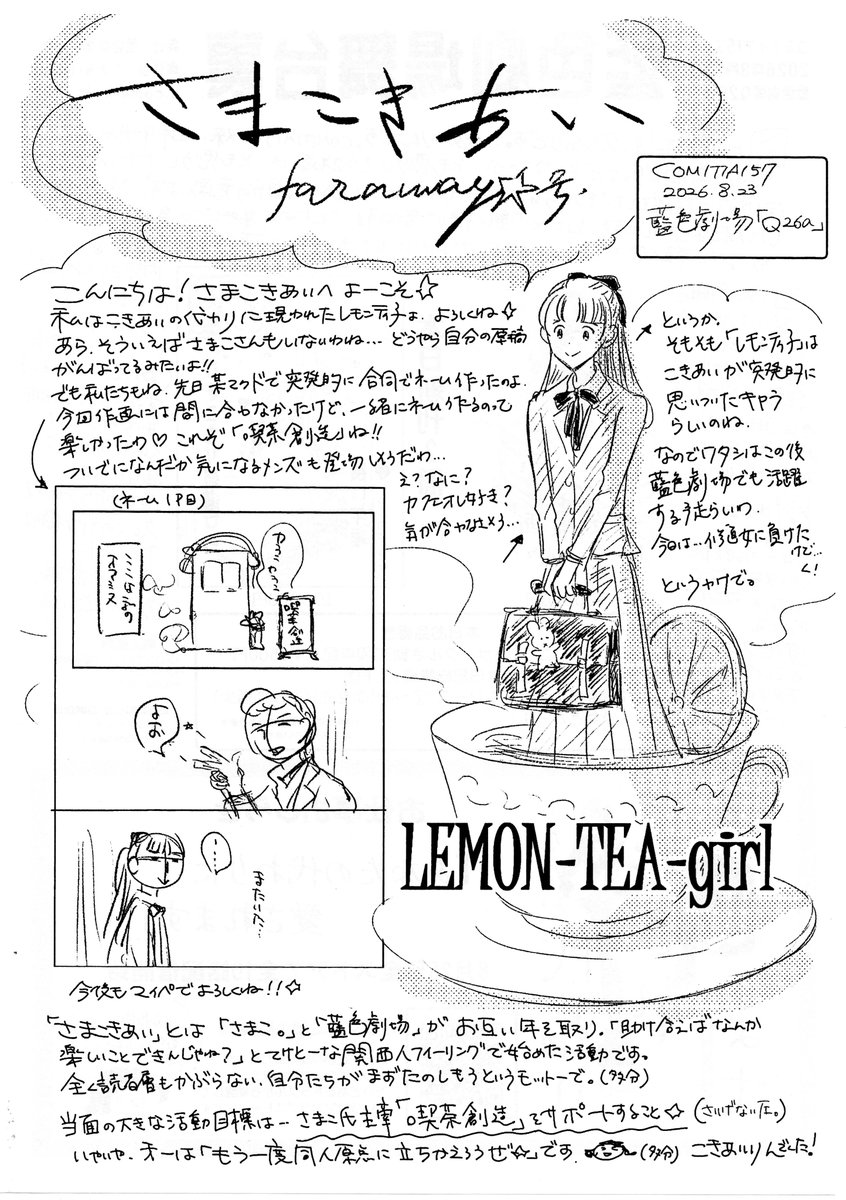 さまこきあい
faraway☆号.
COMITIA157
2026.8.23
藍色劇場「Q26a」
こんにちは！さまこきあいへ よーこそ☆
私はこきあいの代わりに現われたレモンティ子よ. よろしくね☆
あら、そういえばさまこさんもいないわね… どうやら自分の原稿
がんばってるみたいよ!!
でも私たちもね、先日某マクドで突発的に合同でネーム作ったのよ.
今回作画には間に合わなかったけど、一緒にネーム作るのって
楽しかったわ♡ これぞ「喫茶創造」ね!!
ついでになんだか気になるメンズも登場しそうだわ…
え？なに？
カフェオレ好き？
気が合わなそう…
というか、
そもそも「レモンティ子」は
こきあいが突発的に
思いついたキャラ
らしいのね.
なのでワタシはこの後
藍色劇場でも活躍
する予定らしいわ.
今回は…修道女に負けた
けど…
く！
というわけで。
(ネーム1P目)
ここは
喫茶創造
よお
…
まだここ…
LEMON-TEA-girl
今後もマイペでよろしくね!!☆
「さまこきあい」とは「さまこ。」と「藍色劇場」がお互い年を取り、「助け合えばなんか
楽しいことできんじゃね？」とてけとーな関西人フィーリングで始めた活動です。
全く読者層もかぶらない、自分たちがまずたのしもうというモットーで。(多分)
当面の大きな活動目標は… さまこ氏主宰「喫茶創造」をサポートすること☆ (さりげない圧。)
いやいや、オーは「もう一度同人原点に立ちかえろうぜ☆」です (多分) こきあいりんでした！